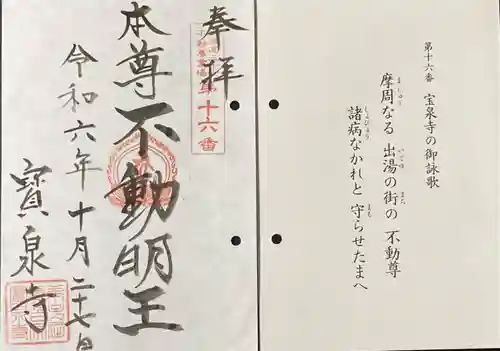 第十六番 宝泉寺の御詠歌
摩周なる 出湯の街の 不動尊
諸病なかれと 守らせたまへ
奉拝
第十六番
本尊不動明王
令和六年十月二十七日
寳泉寺